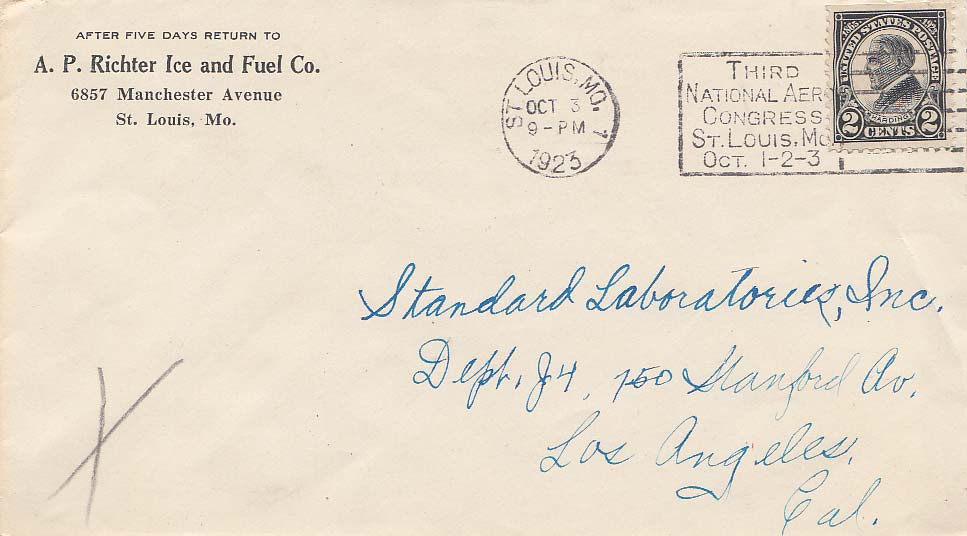 AFTER FIVE DAYS RETURN TO
A. P. Richter Ice and Fuel Co.
6857 Manchester Avenue
St. Louis, Mo.
ST. LOUIS, MO. 1
OCT 3
9-PM
1923
THIRD
NATIONAL AERO
CONGRESS
ST. LOUIS, MO.
OCT. 1-2-3
UNITED STATES POSTAGE
1865 1923
HARDING
2 CENTS 2
Standard Laboratories, Inc.
Dept. J4, 750 Stanford Av.
Los Angeles,
Cal.